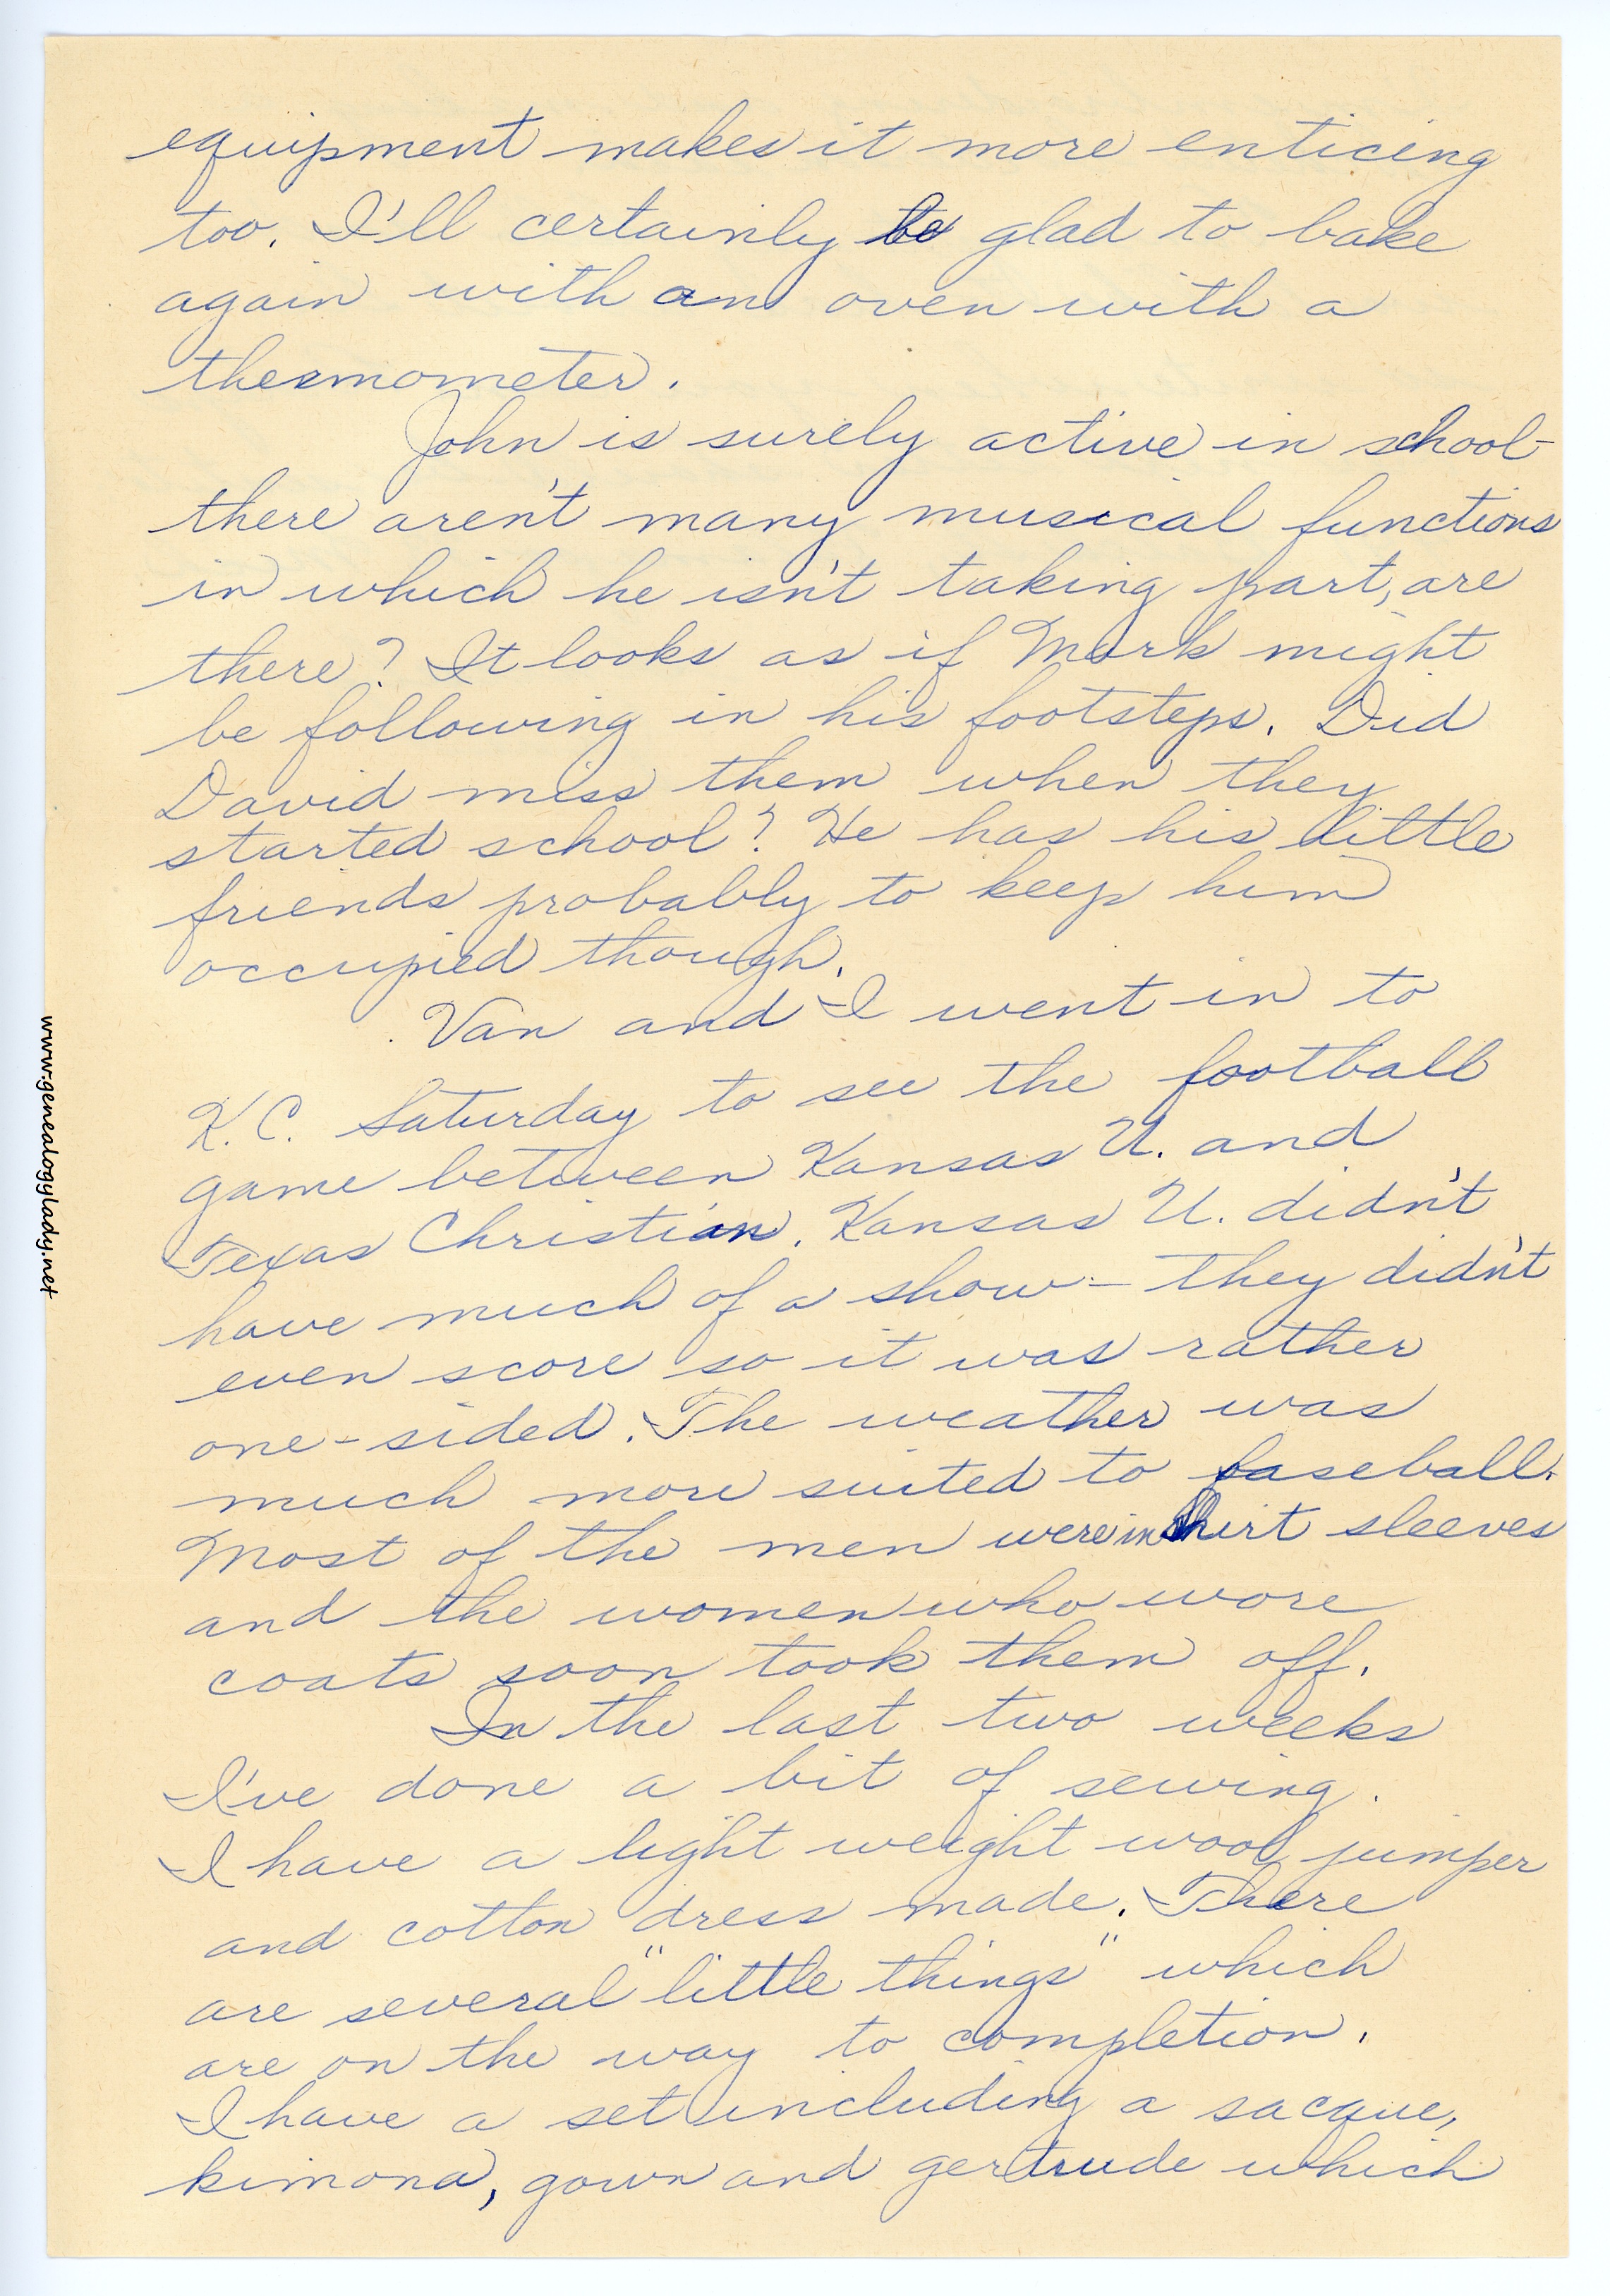 equipment makes it more enticing
too. I'll certainly be glad to bake
again with an oven with a
thermometer.
John is surely active in school-
there aren't many musical functions
in which he isn't taking part, are
there? It looks as if Mark might
be following in his footsteps. Did
David miss them when they
started school? He has his little
friends probably to keep him
occupied though.
Van and I went in to
K.C. Saturday to see the football
game between Kansas U. and
Texas Christian. Kansas U. didn't
have much of a show - they didn't
even score so it was rather
one-sided. The weather was
much more suited to baseball.
Most of the men were in shirt sleeves
and the women who wore
coats soon took them off.
In the last two weeks
I've done a bit of sewing.
I have a light weight wool jumper
and cotton dress made. There
are several "little things" which
are on the way to completion.
I have a set including a sacque,
kimona, gown and gertrude which
www.genealogylady.net